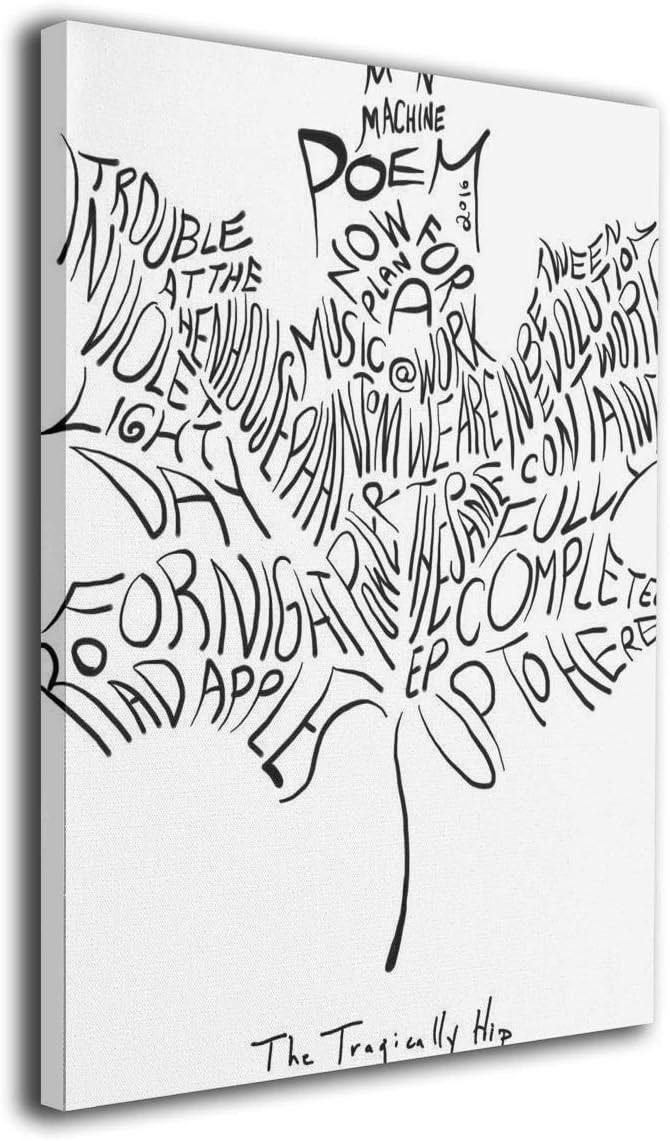 MACHINE
POEM
2016
NOW FOR
PLAN
A
TROUBLE
AT THE
HENHOUSE
IN VIOLET
LIGHT
MUSIC
@WORK
PHANTOM
POWER
WE ARE
THE SAME
IN BETWEEN
EVOLUTION
WORK
CONTAIN
FULLY
COMPLETE
DAY
FOR NIGHT
ROAD APPLES
THE
EP
UP TO HERE
The Tragically Hip